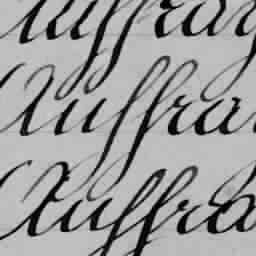 Auffra
Auffra
Auffra